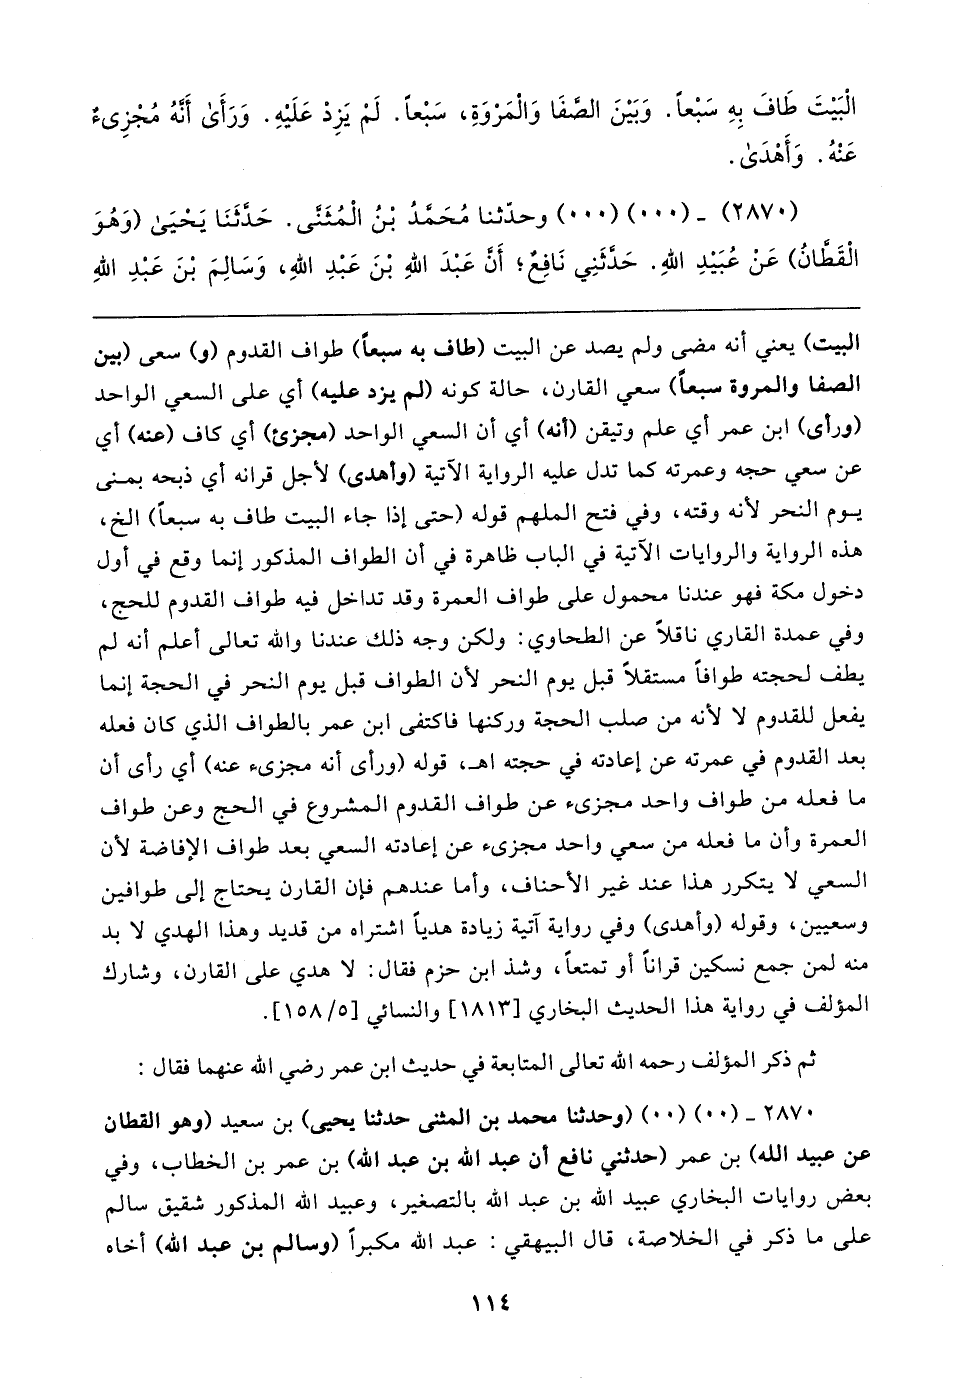 الْبَيْتَ طَافَ بِهِ سَبْعاً. وَبَيْنَ الصَّفَا وَالْمَرْوَةِ، سَبْعاً. لَمْ يَزِدْ عَلَيْهِ. وَرَأَىٰ أَنَّهُ مُجْزِىءٌ
عَنْهُ. وَأَهْدَىٰ.
(٢٨٧٠) ـ (٠٠٠) (٠٠٠) وحدّثنا مُحَمَّدُ بْنُ الْمُثَنَّى. حَدَّثَنَا يَحْيَىٰ (وَهُوَ
الْقَطَّانُ) عَنْ عُبَيْدِ اللهِ. حَدَّثَنِي نَافِعٌ؛ أَنَّ عَبْدَ اللهِ بْنَ عَبْدِ اللهِ، وَسَالِمَ بْنَ عَبْدِ اللهِ
البيت) يعني أنه مضى ولم يصد عن البيت (طاف به سبعاً) طواف القدوم (و) سعى (بين
الصفا والمروة سبعاً) سعي القارن، حالة كونه (لم يزد عليه) أي على السعي الواحد
(ورأى) ابن عمر أي علم وتيقن (أنه) أي أن السعي الواحد (مجزئ) أي كاف (عنه) أي
عن سعي حجه وعمرته كما تدل عليه الرواية الآتية (وأهدى) لأجل قرانه أي ذبحه بمنى
يوم النحر لأنه وقته، وفي فتح الملهم قوله (حتى إذا جاء البيت طاف به سبعاً) الخ،
هذه الرواية والروايات الآتية في الباب ظاهرة في أن الطواف المذكور إنما وقع في أول
دخول مكة فهو عندنا محمول على طواف العمرة وقد تداخل فيه طواف القدوم للحج،
وفي عمدة القاري ناقلاً عن الطحاوي: ولكن وجه ذلك عندنا والله تعالى أعلم أنه لم
يطف لحجته طوافاً مستقلاً قبل يوم النحر لأن الطواف قبل يوم النحر في الحجة إنما
يفعل للقدوم لا لأنه من صلب الحجة وركنها فاكتفى ابن عمر بالطواف الذي كان فعله
بعد القدوم في عمرته عن إعادته في حجته اهـ، قوله (ورأى أنه مجزىء عنه) أي رأى أن
ما فعله من طواف واحد مجزىء عن طواف القدوم المشروع في الحج وعن طواف
العمرة وأن ما فعله من سعي واحد مجزىء عن إعادته السعي بعد طواف الإفاضة لأن
السعي لا يتكرر هذا عند غير الأحناف، وأما عندهم فإن القارن يحتاج إلى طوافين
وسعيين، وقوله (وأهدى) وفي رواية آتية زيادة هدياً اشتراه من قديد وهذا الهدي لا بد
منه لمن جمع نسكين قراناً أو تمتعاً، وشذ ابن حزم فقال: لا هدي على القارن، وشارك
المؤلف في رواية هذا الحديث البخاري [١٨١٣] والنسائي [١٥٨/٥].
ثم ذكر المؤلف رحمه الله تعالى المتابعة في حديث ابن عمر رضي الله عنهما فقال:
٢٨٧٠ ـ (٠٠) (٠٠) (وحدثنا محمد بن المثنى حدثنا يحيى) بن سعيد (وهو القطان
عن عبيد الله) بن عمر (حدثني نافع أن عبد الله بن عبد الله) بن عمر بن الخطاب، وفي
بعض روايات البخاري عبيد الله بن عبد الله بالتصغير، وعبيد الله المذكور شقيق سالم
على ما ذكر في الخلاصة، قال البيهقي: عبد الله مكبراً (وسالم بن عبد الله) أخاه
١١٤